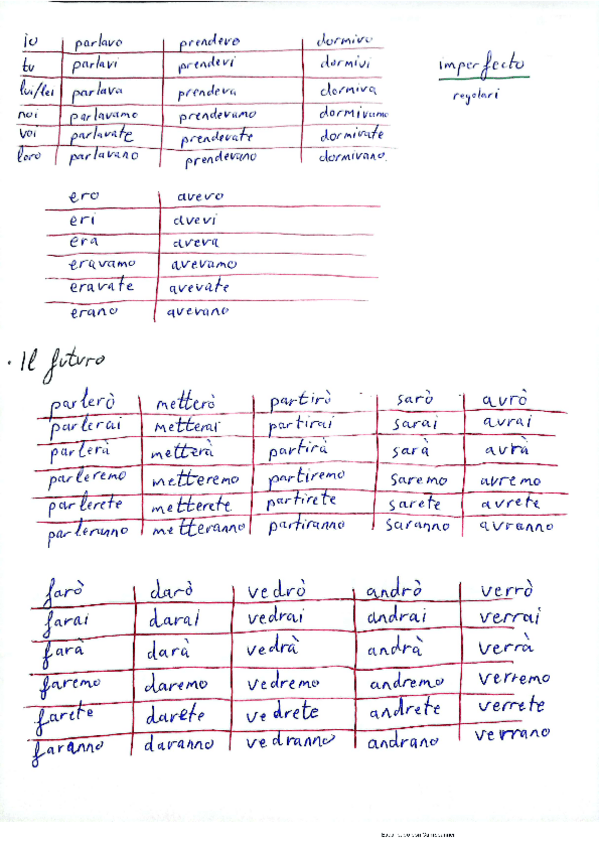 io parlavo prendevo dormivo
imperfecto
tu parlavi prendevi dormivi
regolari
lui/lei parlava prendeva dormiva
noi parlavamo prendevamo dormivamo
voi parlavate prendevate dormivate
loro parlavano prendevano dormivano
ero avevo
eri avevi
era aveva
eravamo avevamo
eravate avevate
erano avevano
· Il futuro
parlerò metterò partirò sarò avrò
parlerai metterai partirai sarai avrai
parlerà metterà partirà sarà avrà
parleremo metteremo partiremo saremo avremo
parlerete metterete partirete sarete avrete
parleranno metteranno partiranno saranno avranno
farò darò vedrò andrò verrò
farai darai vedrai andrai verrai
farà darà vedrà andrà verrà
faremo daremo vedremo andremo verremo
farete darete vedrete andrete verrete
faranno daranno vedranno andrano verrano